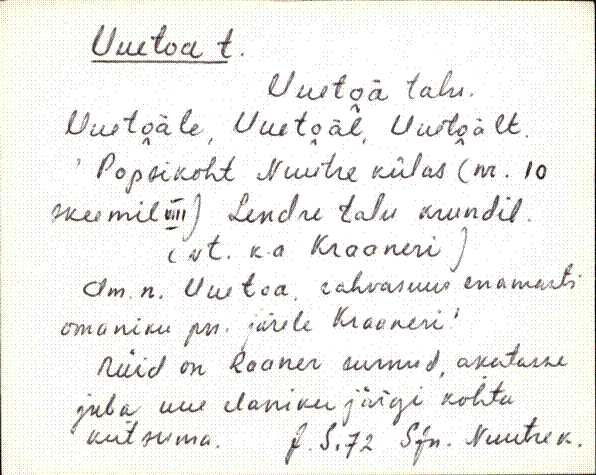 Uuetoa t.
Uuetoä talu.
Uuetoäle, Uuetoäl, Uuetoält.
Popsikoht Nuutre külas (nr. 10
skeemil VIII) Lendre talu krundil.
(vt. k.a Kraaneri)
Am. n. Uuetoa, rahvasuus enamasti
omaniku pn. järele Kraaneri!
Nüid on Raaner surnud, akatasse
juba uue elaniku järgi kohta
kutsuma. J. S. 72 Sjn. Nuutre k.